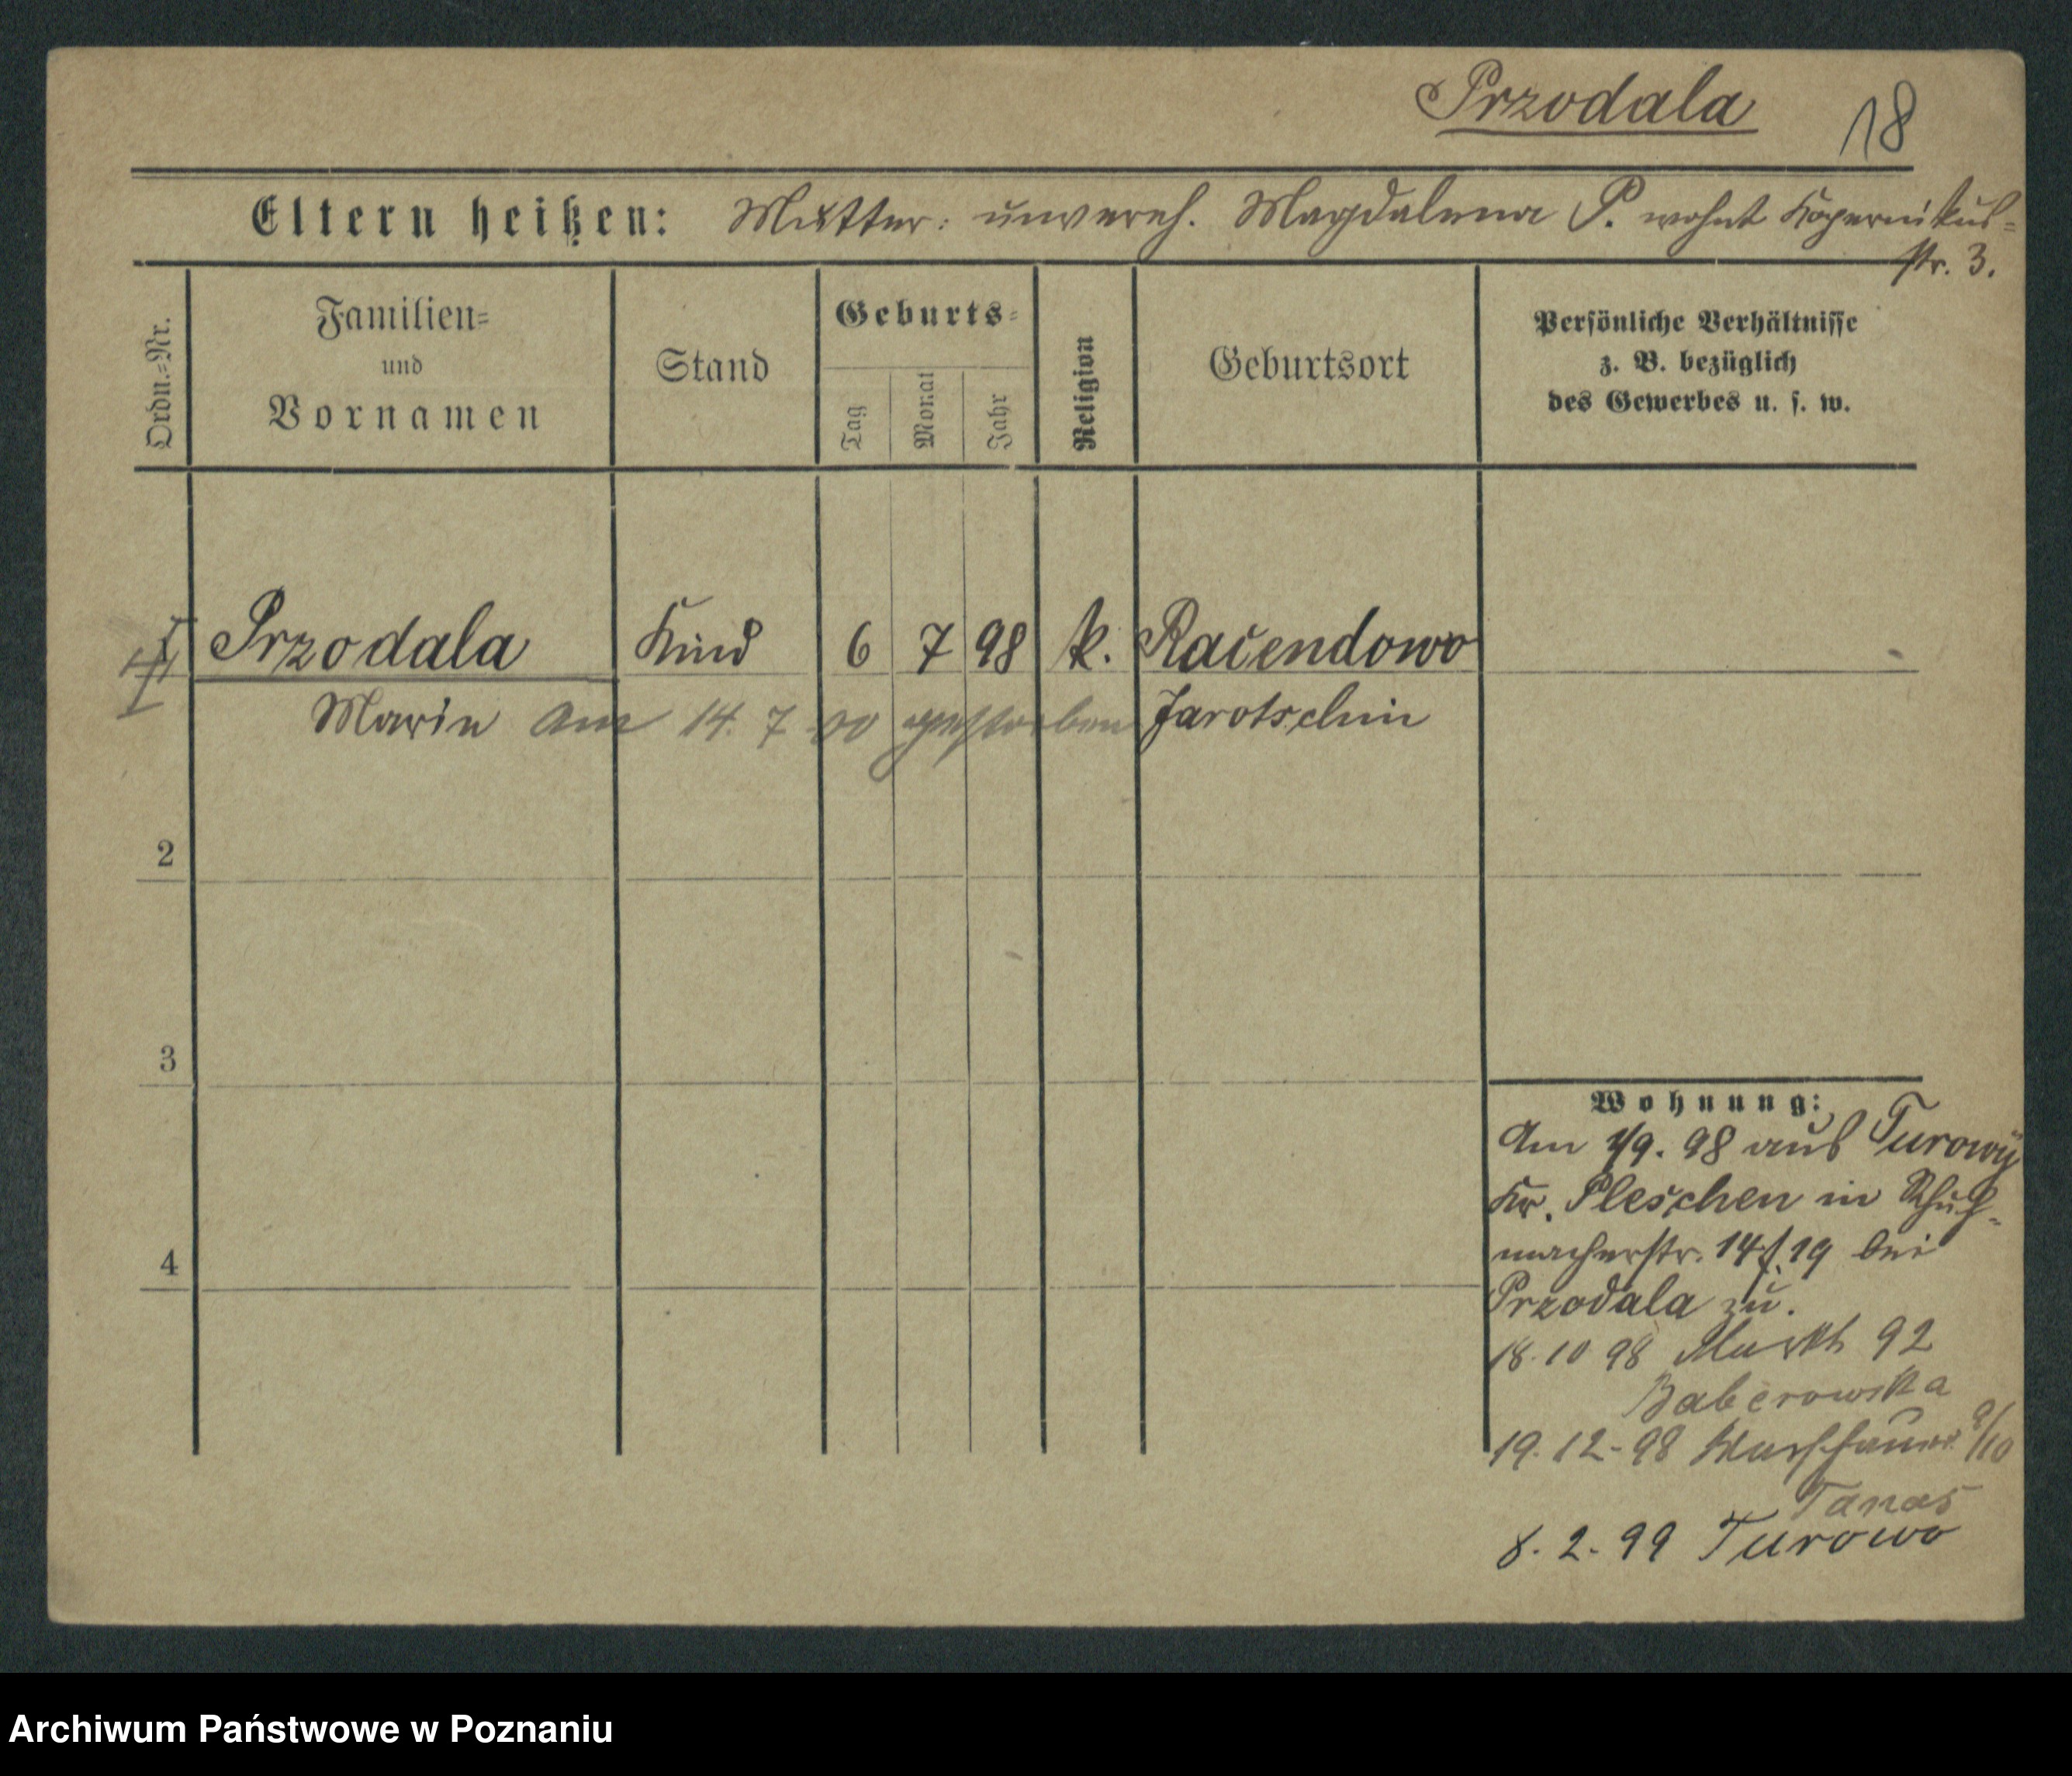 Przodala
18
Eltern heißen: Mutter: unvereh. Magdalena P. wohnt Kopernikus=
str. 3.
Ordn.=Nr.
Familien=
und
Vornamen
Stand
Geburts=
Tag
Monat
Jahr
Religion
Geburtsort
Persönliche Verhältnisse
z. B. bezüglich
des Gewerbes u. s. w.
Przodala Kind 6 7 98 k. Racendowo
Marie am 14. 7 00 gestorben Jarotschin
2
3
4
Wohnung:
Am 1/9. 98 aus Turowy
Kr. Pleschen in Schuh-
macherstr. 14 f. 19 bei
Przodala zu.
18. 10 98 Markt 92
Baberowska
19. 12 - 98 9/10
Tanas
8. 2. 99 Turowo
Archiwum Państwowe w Poznaniu